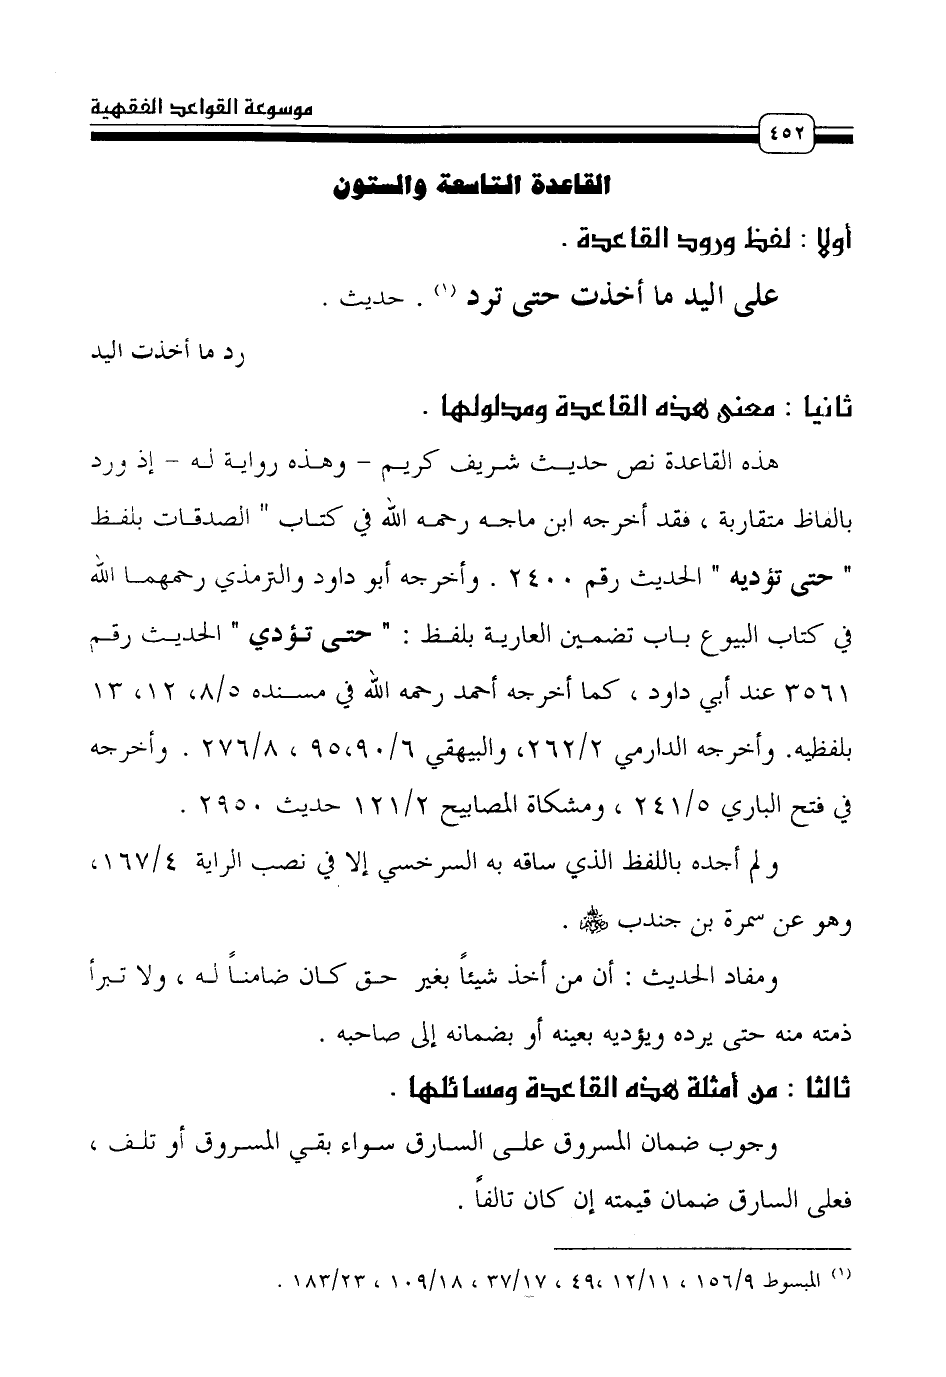 موسوعة القواعد الفقهية
٤٥٢
القاعدة التاسعة والستون
أولا : لفظ ورود القاعدة .
على اليد ما أخذت حتى ترد (١) . حديث .
رد ما أخذت اليد
ثانيا : معنى هذه القاعدة ومدلولها .
هذه القاعدة نص حديث شريف كريم – وهذه رواية له – إذ ورد
بالفاظ متقاربة ، فقد أخرجه ابن ماجه رحمه الله في كتاب " الصدقات بلفظ
" حتى تؤديه " الحديث رقم ٢٤٠٠ . وأخرجه أبو داود والترمذي رحمهما الله
في كتاب البيوع باب تضمين العارية بلفظ : " حتى تؤدي " الحديث رقم
٣٥٦١ عند أبي داود ، كما أخرجه أحمد رحمه الله في مسنده ٨/٥، ١٢، ١٣
بلفظيه. وأخرجه الدارمي ٢٦٢/٢، والبيهقي ٩٠/٦،٩٥ ، ٢٧٦/٨ . وأخرجه
في فتح الباري ٢٤١/٥ ، ومشكاة المصابيح ١٢١/٢ حديث ٢٩٥٠ .
و لم أجده باللفظ الذي ساقه به السرخسي إلا في نصب الراية ١٦٧/٤،
وهو عن سمرة بن جندب .
ومفاد الحديث : أن من أخذ شيئاً بغير حق كان ضامناً له ، ولا تبرأ
ذمته منه حتى يرده ويؤديه بعينه أو بضمانه إلى صاحبه .
ثالثا : من أمثلة هذه القاعدة ومسائلها .
وجوب ضمان المسروق على السارق سواء بقي المسروق أو تلف ،
فعلى السارق ضمان قيمته إن كان تالفاً .
(١) المبسوط ١٥٦/٩ ، ١٢/١١ ،٤٩ ، ٣٧/١٧ ، ١٠٩/١٨ ، ١٨٣/٢٣ .